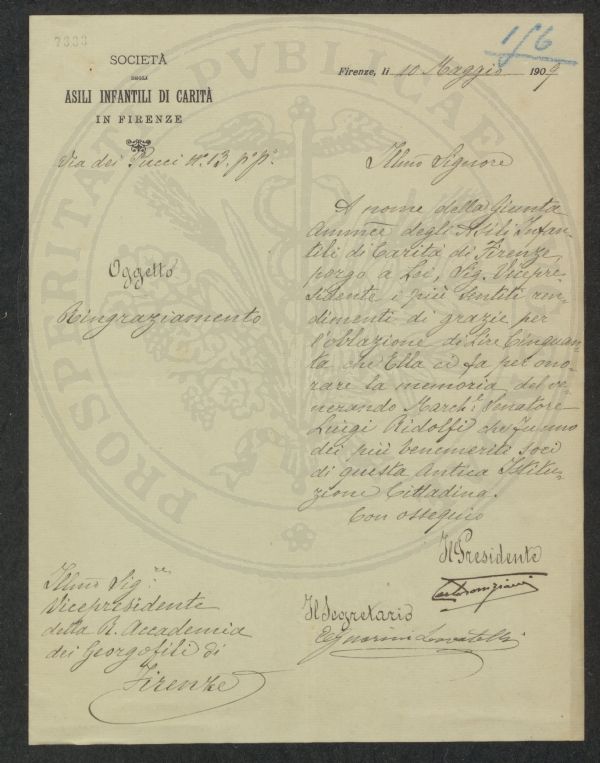 7333
1/6
SOCIETÀ
DEGLI
ASILI INFANTILI DI CARITÀ
IN FIRENZE
Firenze, li 10 Maggio 1909
Via dei Pucci N.° 13. p.° p.°
Illmo Signore
Oggetto
Ringraziamento
A nome della Giunta
Ammce degli Asili Infan-
tili di Carità di Firenze
porgo a Lei, Sig. Vicepre-
sidente i più sentiti ren-
dimenti di grazie per
l'oblazione di Lire Cinquan-
ta che Ella ci fa per ono-
rare la memoria del ve-
nerando March.e Senatore
Luigi Ridolfi che fu uno
dei più benemeriti Soci
di questa Antica Istitu-
zione Cittadina.
Con ossequio
Il Presidente
Il Segretario
Illmo Sig.re
Vicepresidente
della R. Accademia
dei Georgofili di
Firenze
PROSPERITATI PUBLICAE